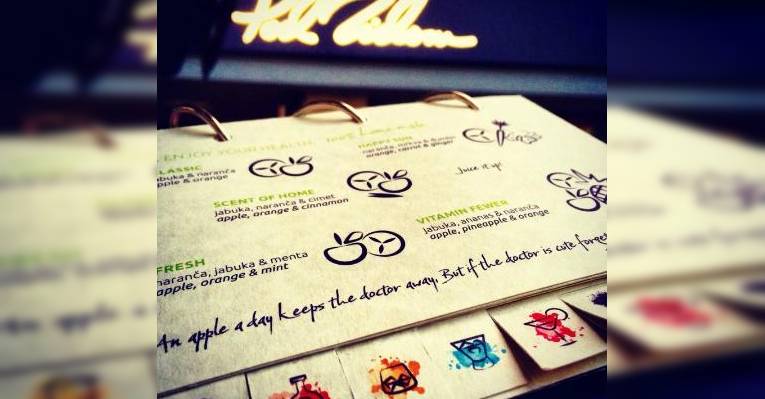 ENJOY YOUR HEALTH.
CLASSIC
jabuka & naranča
apple & orange
HAPPY SUN
orange, carrot & ginger
Juice it up!
SCENT OF HOME
jabuka, naranča & cimet
apple, orange & cinnamon
VITAMIN FEWER
jabuka, ananas & naranča
apple, pineapple & orange
FRESH
naranča, jabuka & menta
apple, orange & mint
An apple a day keeps the doctor away. But if the doctor is cute forget